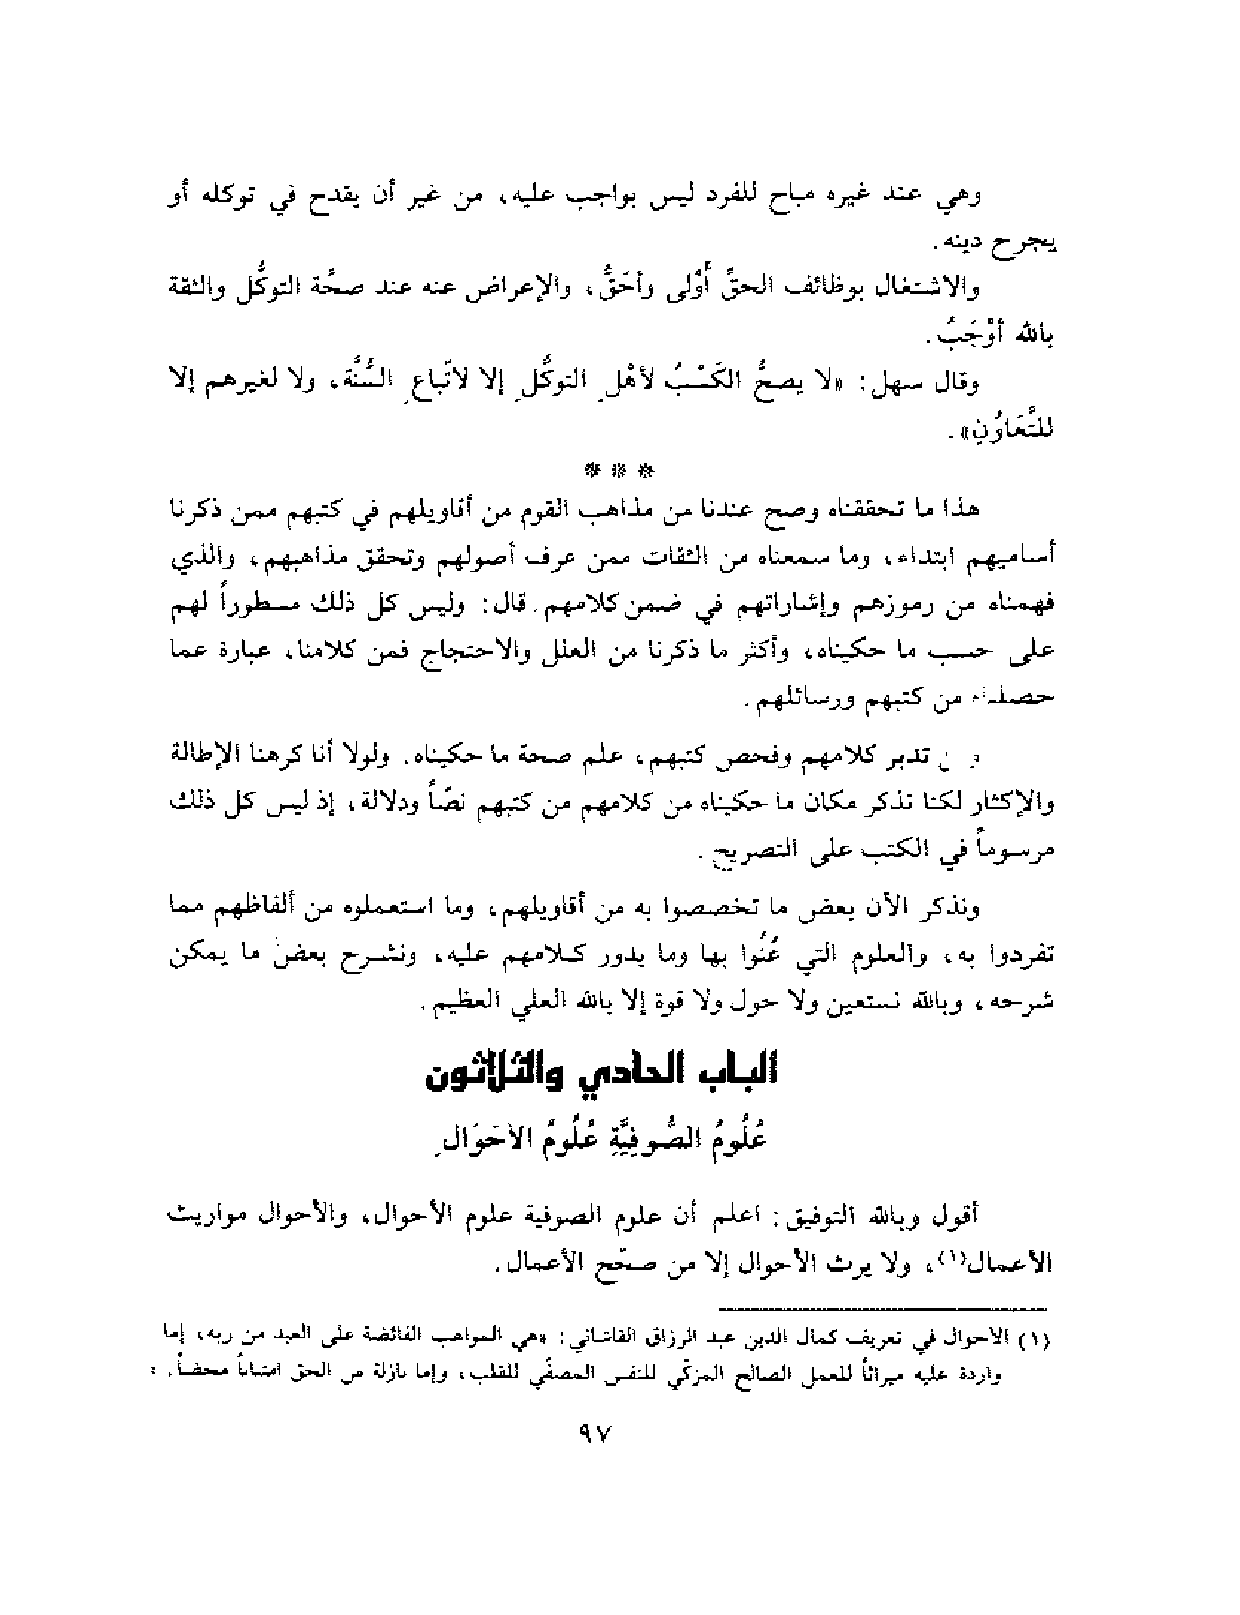 وهي عند غيره مباح للفرد ليس بواجب عليه، من غير أن يقدح في توكله أو
يجرح دينه.
والاشتغال بوظائف الحقِّ أَوْلى وأحَقُّ، والإعراض عنه عند صحَّة التوكُّل والثقة
بالله أوْجَبُ.
وقال سهل: «لا يصحُّ الكَسْبُ لأهْلِ التوكُّلِ إلا لاتّباعِ السُّنَّة، ولا لغيرهم إلا
للتَّعَاوُنِ».
* * *
هذا ما تحققناه وصح عندنا من مذاهب القوم من أقاويلهم في كتبهم ممن ذكرنا
أساميهم ابتداء، وما سمعناه من الثقات ممن عرف أصولهم وتحقق مذاهبهم، والذي
فهمناه من رموزهم وإشاراتهم في ضمن كلامهم. قال: وليس كل ذلك مسطوراً لهم
على حسب ما حكيناه، وأكثر ما ذكرنا من العلل والاحتجاج فمن كلامنا، عبارة عما
حصلناه من كتبهم ورسائلهم.
تدبر كلامهم وفحص كتبهم، علم صحة ما حكيناه. ولولا أنا كرهنا الإطالة
والإكثار لكنا نذكر مكان ما حكيناه من كلامهم من كتبهم نصّاً ودلالة، إذ ليس كل ذلك
مرسوماً في الكتب على التصريح.
ونذكر الآن بعض ما تخصصوا به من أقاويلهم، وما استعملوه من ألفاظهم مما
تفردوا به، والعلوم التي عُنُوا بها وما يدور كلامهم عليه، ونشرح بعضَ ما يمكن
شرحه، وبالله نستعين ولا حول ولا قوة إلا بالله العلي العظيم.
الباب الحادي والثلاثون
عُلُومُ الصُّوفيَّةِ عُلُومُ الأحَوَالِ
أقول وبالله التوفيق: اعلم أن علوم الصوفية علوم الأحوال، والأحوال مواريث
الأعمال(١)، ولا يرث الأحوال إلا من صحّح الأعمال.
(١) الأحوال في تعريف كمال الدين عبد الرزاق القاشاني: «هي المواهب الفائضة على العبد من ربه، إما
واردة عليه ميراثاً للعمل الصالح المزكّي للنفس المصفّي للقلب، وإما نازلة من الحق امتناناً محضاً. =
٩٧